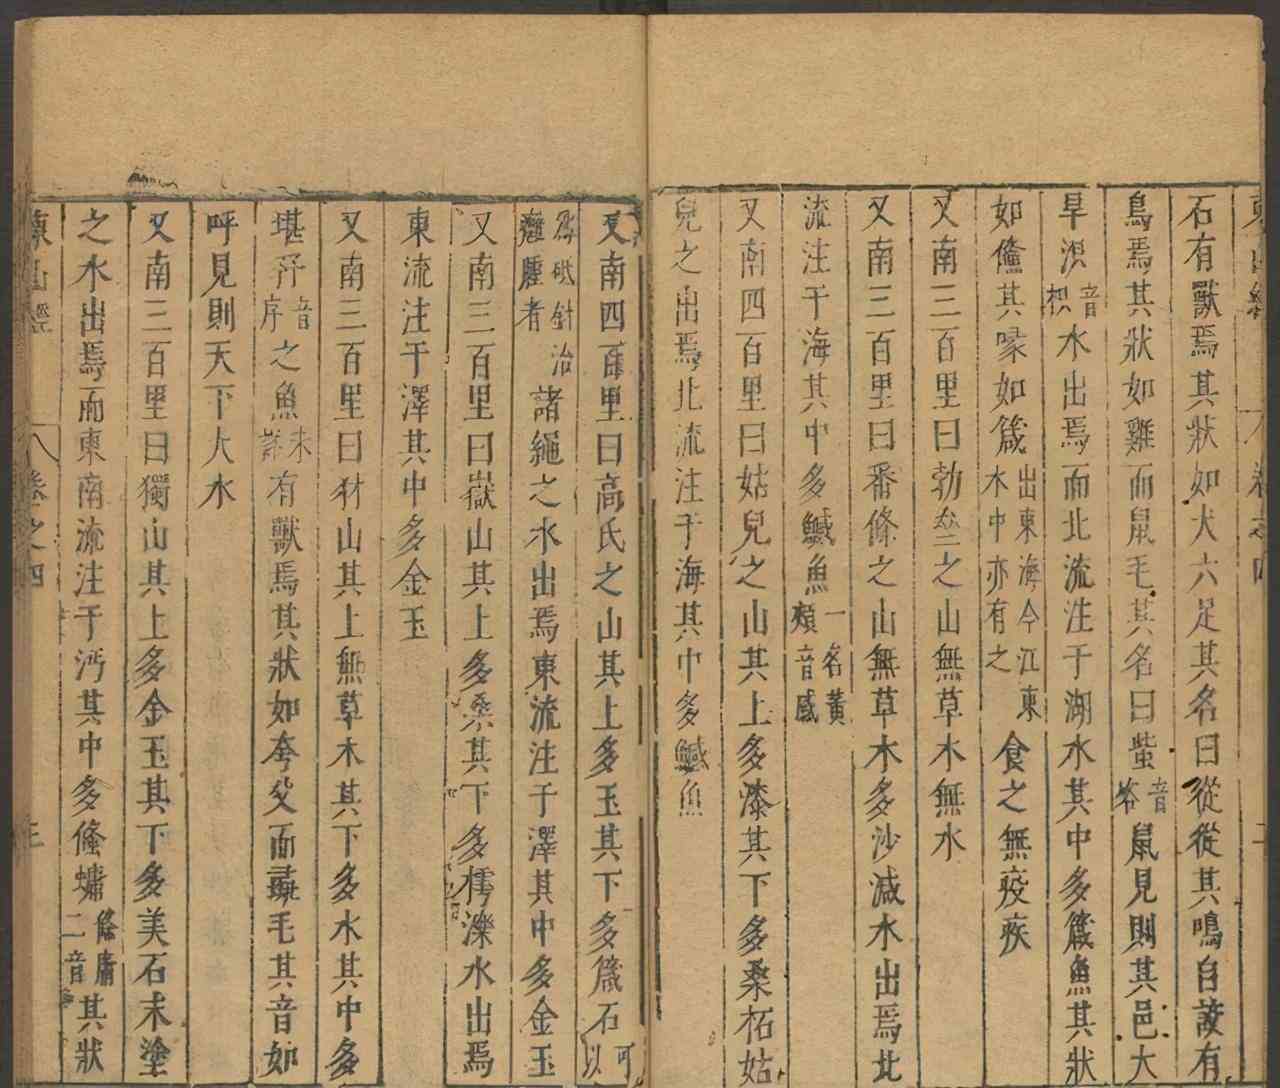 石有獸焉其狀如犬六足其名曰從從其鳴自詨有
鳥焉其狀如雞而鼠毛其名曰𧌁音咨鼠見則其邑大
旱㳅音枳水出焉而北流注于湖水其中多箴魚其狀
如鯈其喙如箴出東海今江東水中亦有之食之無疫疾
又南三百里曰勃垒之山無草木無水
又南三百里曰番條之山無草木多沙減水出焉北
流注于海其中多鱤魚一名黃頰音感
又南四百里曰姑兒之山其上多漆其下多桑柘姑
兒之出焉北流注于海其中多鱤魚
又南四百里曰高氏之山其上多玉其下多箴石可以
為砥針治癰腫者諸繩之水出焉東流注于澤其中多金玉
又南三百里曰嶽山其上多桑其下多樗濼水出焉
東流注于澤其中多金玉
又南三百里曰犲山其上無草木其下多水其中多
堪㐨音序之魚未詳有獸焉其狀如夸父而彘毛其音如
呼見則天下大水
又南三百里曰獨山其上多金玉其下多美石末塗
之水出焉而東南流注于沔其中多鯈䗤條庸二音其狀
東山經 卷之四 三